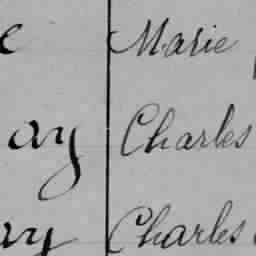 e Marie
ay Charles
ay Charles